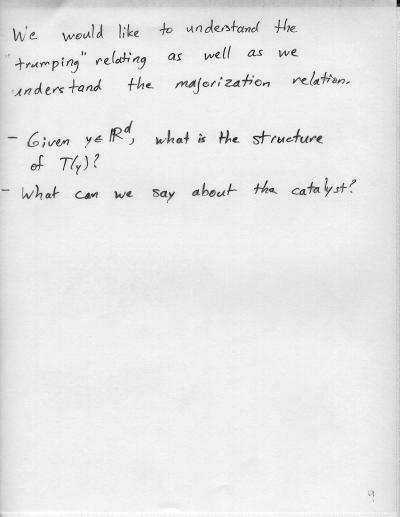 We would like to understand the
"trumping" relating as well as we
understand the majorization relation.
- Given y ∈ ℝᵈ, what is the structure
of T(y)?
- What can we say about the catalyst?
9